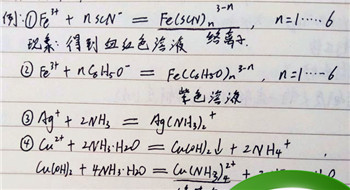 例:① Fe³⁺ + nSCN⁻ = Fe(SCN)ₙ³⁻ⁿ, n=1……6
现象:得到血红色溶液 络离子
② Fe³⁺ + nC₆H₅O⁻ = Fe(C₆H₅O)ₙ³⁻ⁿ, n=1……6
紫色溶液
③ Ag⁺ + 2NH₃ = Ag(NH₃)₂⁺
④ Cu²⁺ + 2NH₃·H₂O = Cu(OH)₂↓ + 2NH₄⁺
Cu(OH)₂ + 4NH₃·H₂O = Cu(NH₃)₄²⁺ + 2